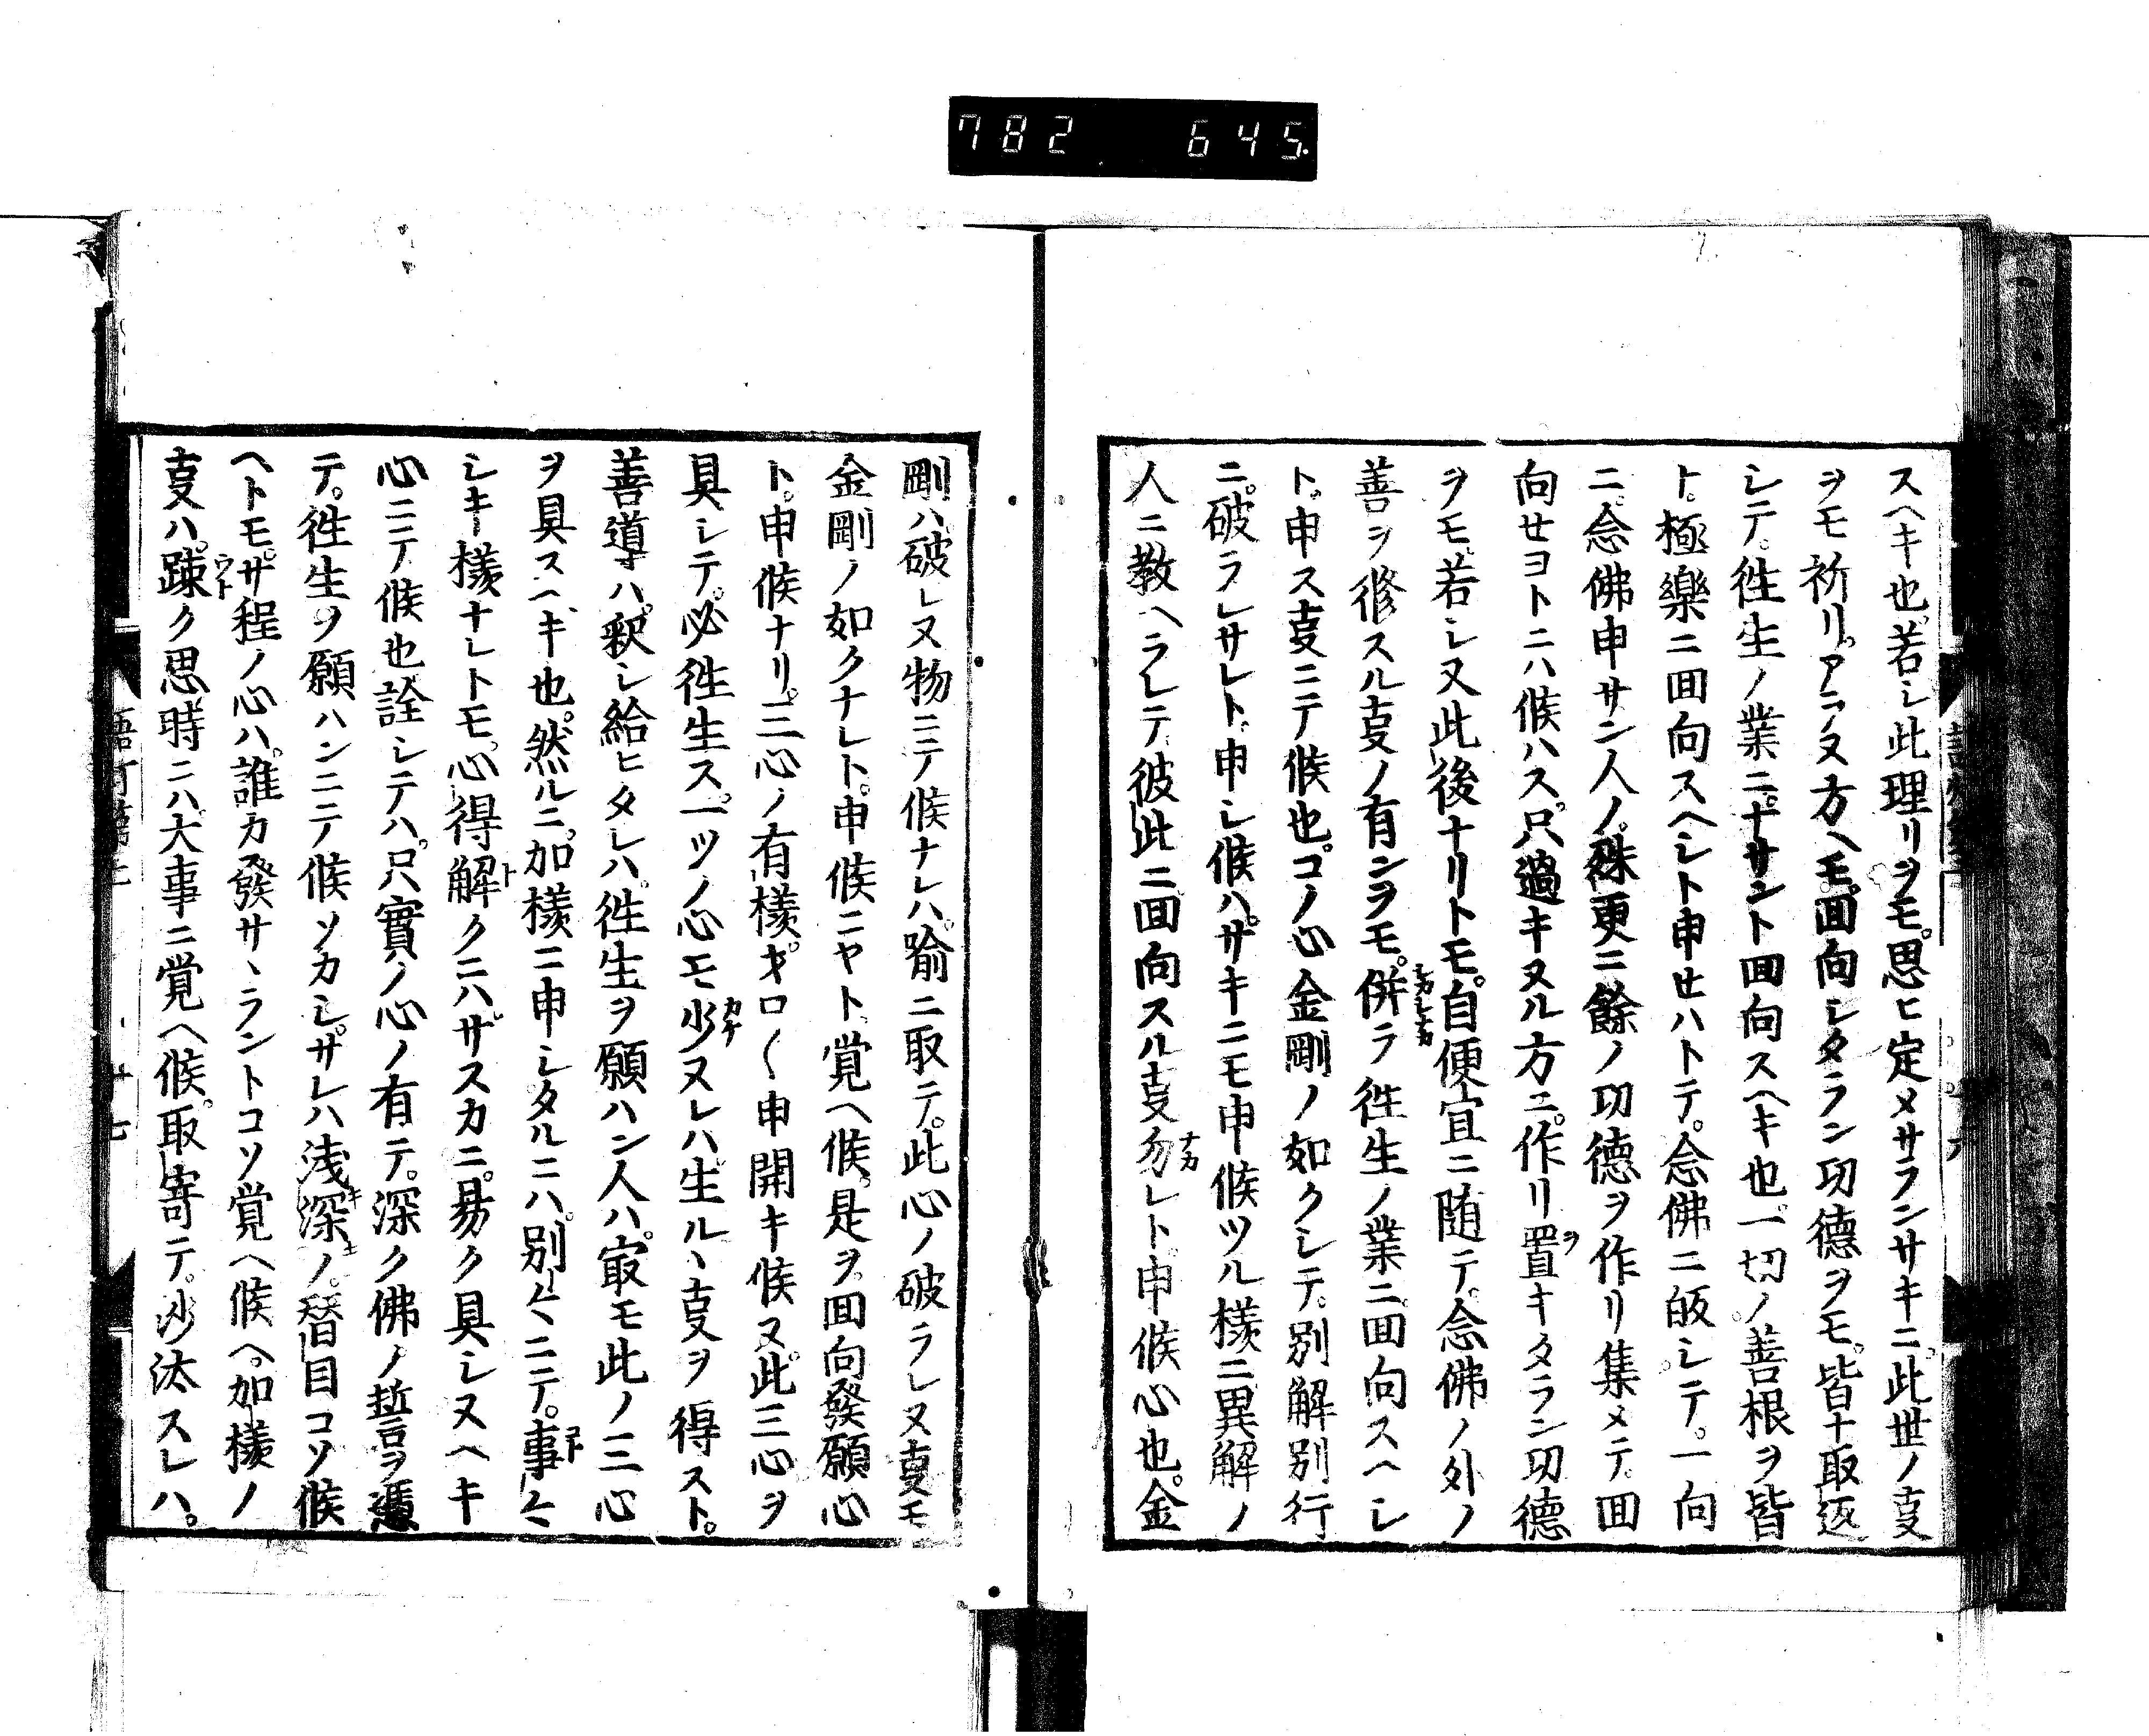 782 645
スヘキ也。若シ此理リヲモ。思ヒ定メサランサキニ。此世ノ事
ヲモ祈リ。アラヌ方ヘモ。回向シタラン功徳ヲモ。皆ナ取返
シテ。徃生ノ業ニ。ナサント回向スヘキ也。一切ノ善根ヲ皆
ト。極樂ニ回向スヘシト申セハトテ。念佛ニ皈シテ。一向
ニ。念佛申サン人ノ。殊更ニ餘ノ功徳ヲ作リ集メテ。回
向セヨトニハ候ハス。只過キヌル方ニ。作リ置キタラン功徳
ヲモ。若シ又此後ナリトモ。自便宜ニ随テ。念佛ノ外ノ
善ヲ修スル事ノ有ンヲモ。併ラ徃生ノ業ニ。回向スヘシ
ト。申ス事ニテ候也。コノ心金剛ノ如クシテ。別解別行
ニ。破ラレサレト。申シ候ハ。サキニモ申候ツル樣ニ。異解ノ
人ニ教ヘラレテ。彼此ニ回向スル事勿レト。申候心也。金
剛ハ。破レヌ物ニテ候ナレハ。喻ニ取テ。此心ノ破ラレヌ事モ
金剛ノ如クナレト。申候ニヤト。覚ヘ候。是ヲ。回向發願心
ト。申候ナリ。三心ノ有樣。オロ〱申開キ候ヌ。此三心ヲ
具シテ。必徃生ス。一ツノ心モ少ヌレハ。生ルヽ事ヲ得スト。
善導ハ。釈シ給ヒタレハ。徃生ヲ願ハン人ハ。最モ此ノ三心
ヲ具スヘキ也。然ルニ。加樣ニ申シタルニハ。別々ニテ。事々
シキ樣ナレトモ。心得解クニハ。サスカニ。易ク具シヌヘキ
心ニテ候也。詮シテハ。只實ノ心ノ有テ。深ク佛ノ誓ヲ憑
テ。徃生ヲ願ハンニテ候ソカシ。サレハ浅深ノ。替目コソ候
ヘトモ。サ程ノ心ハ。誰カ發サヽラントコソ覚ヘ候ヘ。加樣ノ
事ハ。踈ク思時ニハ。大事ニ覚ヘ候。取寄テ。沙汰スレハ。